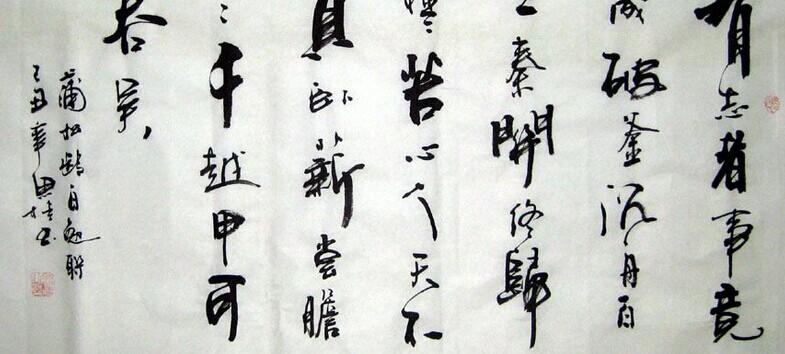 有志者事竟
成破釜沉舟百
二秦關終歸
楚苦心人天不
負卧薪尝膽
三千越甲可
吞吴
蒲松齡自勉聯
己丑年書